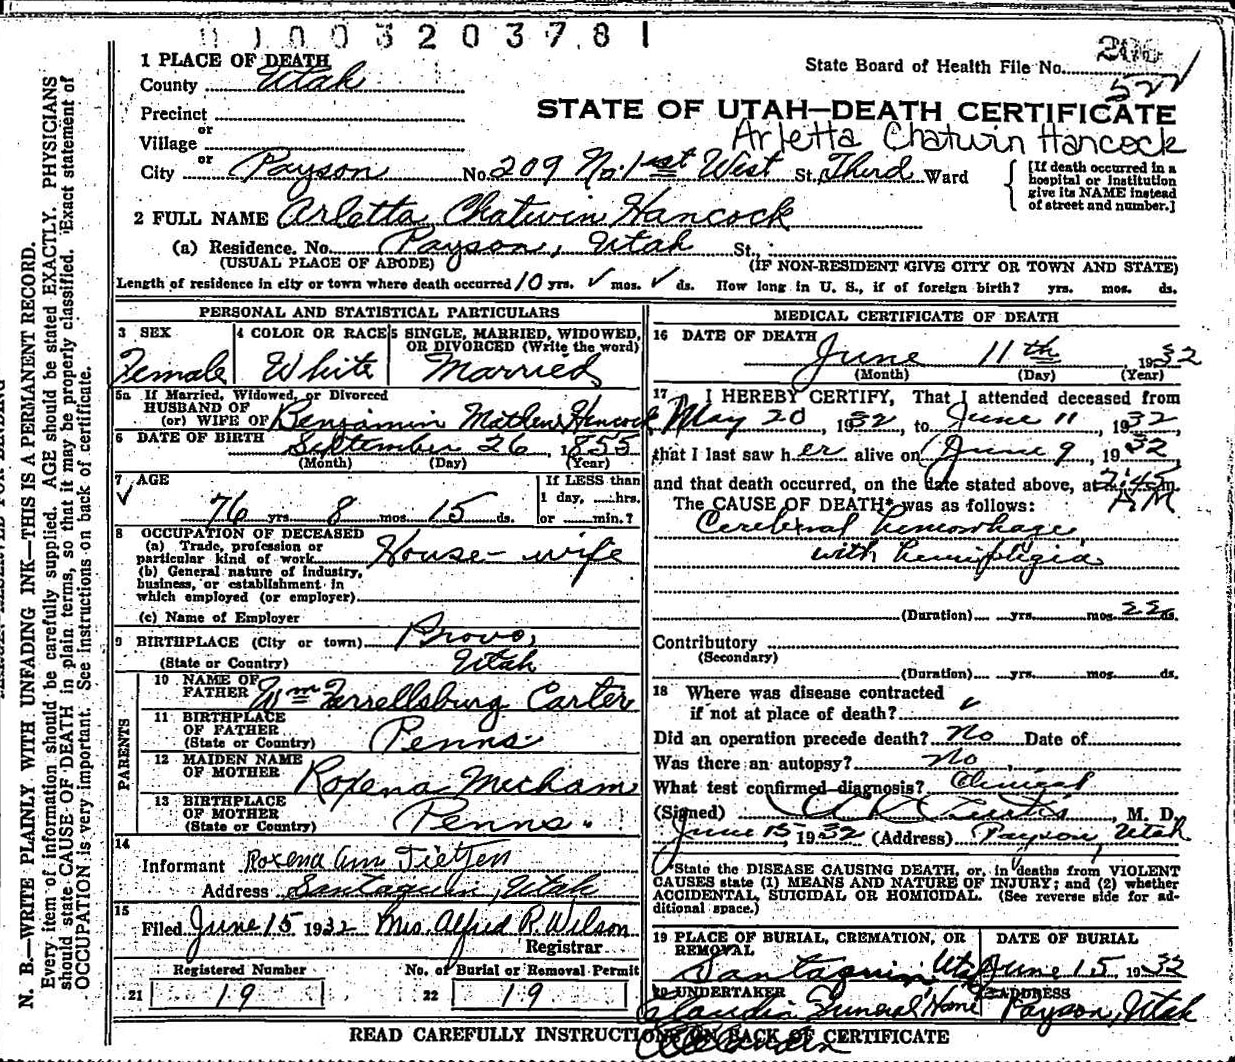 1003203781
1 PLACE OF DEATH
County Utah
State Board of Health File No. 206
522
Precinct
or
Village
or
STATE OF UTAH—DEATH CERTIFICATE
Arletta Chatwin Hancock
City Payson No. 209 No. 1st West St. Third Ward
[If death occurred in a hospital or institution give its NAME instead of street and number.]
2 FULL NAME Arletta Chatwin Hancock
(a) Residence. No. Payson, Utah St.,
(USUAL PLACE OF ABODE) (IF NON-RESIDENT GIVE CITY OR TOWN AND STATE)
Length of residence in city or town where death occurred 10 yrs. ✓ mos. ✓ ds. How long in U. S., if of foreign birth? yrs. mos. ds.
PERSONAL AND STATISTICAL PARTICULARS
3 SEX
Female
4 COLOR OR RACE
White
5 SINGLE, MARRIED, WIDOWED, OR DIVORCED (Write the word)
Married
5a If Married, Widowed, or Divorced
HUSBAND OF
(or) WIFE OF Benjamin Hancock
6 DATE OF BIRTH
September 26, 1855
(Month) (Day) (Year)
7 AGE
✓
76 yrs. 8 mos. 15 ds.
If LESS than
1 day, ......hrs.
or ......min.?
8 OCCUPATION OF DECEASED
(a) Trade, profession or
particular kind of work House-wife
(b) General nature of industry,
business, or establishment in
which employed (or employer)
(c) Name of Employer
9 BIRTHPLACE (City or town) Provo,
(State or Country) Utah
PARENTS
10 NAME OF
FATHER Wm Carter
11 BIRTHPLACE
OF FATHER
(State or Country) Penns.
12 MAIDEN NAME
OF MOTHER Roxena Mecham
13 BIRTHPLACE
OF MOTHER
(State or Country) Penns.
14
Informant Roxena Ann Tietjen
Address Santaquin, Utah
15
Filed June 15 1932 Mrs. Alfred R. Wilson
Registrar
Registered Number
21 19
No. of Burial or Removal Permit
22 19
MEDICAL CERTIFICATE OF DEATH
16 DATE OF DEATH
June 11th 1932
(Month) (Day) (Year)
17 I HEREBY CERTIFY, That I attended deceased from
May 20, 1932, to June 11, 1932,
that I last saw her alive on June 9, 1932
and that death occurred, on the date stated above, at 7:45 m.
AM
The CAUSE OF DEATH* was as follows:
Cerebral hemorrhage
with hemiplegia
(Duration) yrs. mos. 22 ds.
Contributory
(Secondary)
(Duration) yrs. mos. ds.
18 Where was disease contracted
if not at place of death? ✓
Did an operation precede death? No Date of
Was there an autopsy? No
What test confirmed diagnosis? Clinical
(Signed) Curtis, M. D.
June 15, 1932 (Address) Payson, Utah
*State the DISEASE CAUSING DEATH, or, in deaths from VIOLENT
CAUSES state (1) MEANS AND NATURE OF INJURY; and (2) whether
ACCIDENTAL, SUICIDAL OR HOMICIDAL. (See reverse side for ad-
ditional space.)
19 PLACE OF BURIAL, CREMATION, OR
REMOVAL
Santaquin Utah
DATE OF BURIAL
June 15, 1932
20 UNDERTAKER
Funeral Home
ADDRESS
Payson, Utah
READ CAREFULLY INSTRUCTIONS ON BACK OF CERTIFICATE
N. B.—WRITE PLAINLY WITH UNFADING INK—THIS IS A PERMANENT RECORD.
Every item of information should be carefully supplied. AGE should be stated EXACTLY. PHYSICIANS
should state CAUSE OF DEATH in plain terms, so that it may be properly classified. Exact statement of
OCCUPATION is very important. See instructions on back of certificate.